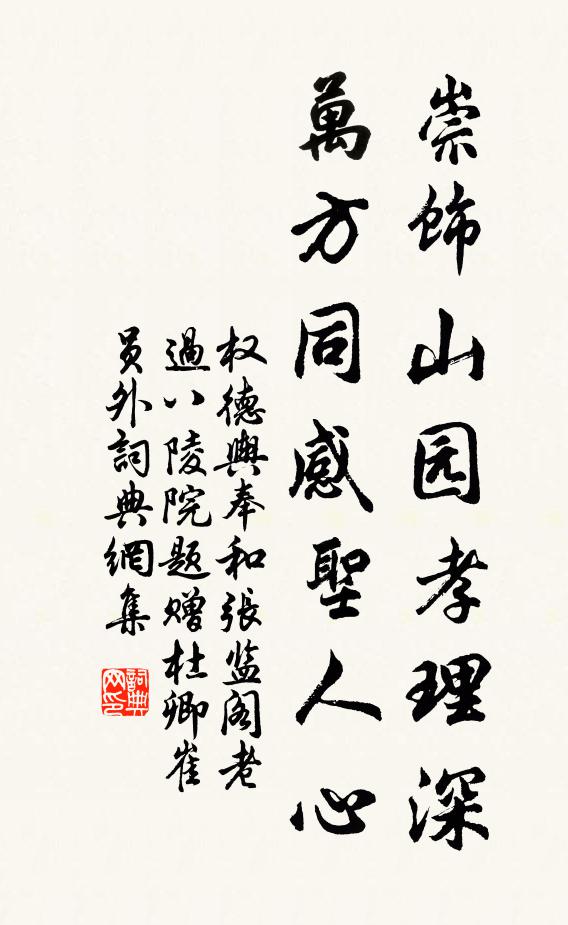 崇饰山园孝理深
萬方同感聖人心
权德輿奉和張监阁老
過八陵院题赠杜卿崔
员外詞典網集
詞典网印